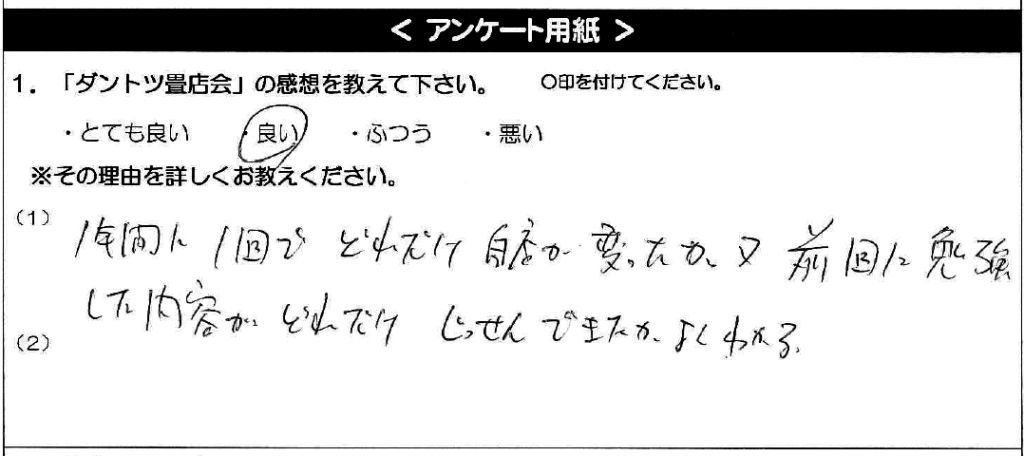 < アンケート用紙 >
1. 「ダントツ畳店会」の感想を教えて下さい。 ○印を付けてください。
・とても良い ・良い ・ふつう ・悪い
※その理由を詳しくお教えください。
(1)
1年間に1回で どれだけ 自店が 変ったか 又 前回に勉強
した内容が どれだけ じっせんできたか よくわかる。
(2)